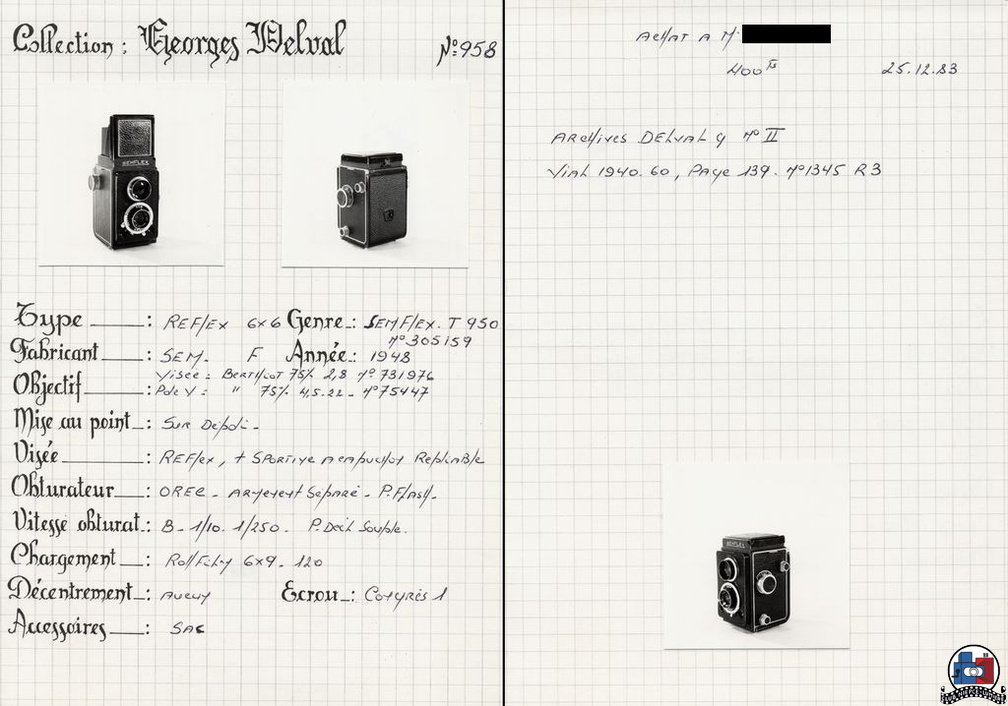 Collection : Georges Delval N°:958
Type : REFlEX 6x6 Genre : SEMFLEX. T 950
N° 305159
Fabricant : SEM. F Année : 1948
Visée : BERTHIOT 75% 2,8 N° 731976
Objectif : PdeV : " 75% 4,5-22 - N° 75447
Mise au point : SUR Dépoli -
Visée : REFlex, + SPORTIVE Replinble
Obturateur : OREC - ARMEMENT SéPARé - P.FlASH.
Vitesse obturat. : B - 1/10. 1/250 - P. Decl Souple.
Chargement : RollFilm 6x9 - 120
Décentrement : AUCUN Ecrou : CONGRÈS 1
Accessoires : SAC
SEMFLEX
ACHAT A M.
400 Fs 25.12.83
ARCHIVES DELVAL G N° II
VIAL 1940. 60, PAGE 139. N°1345 R3
SEMFLEX